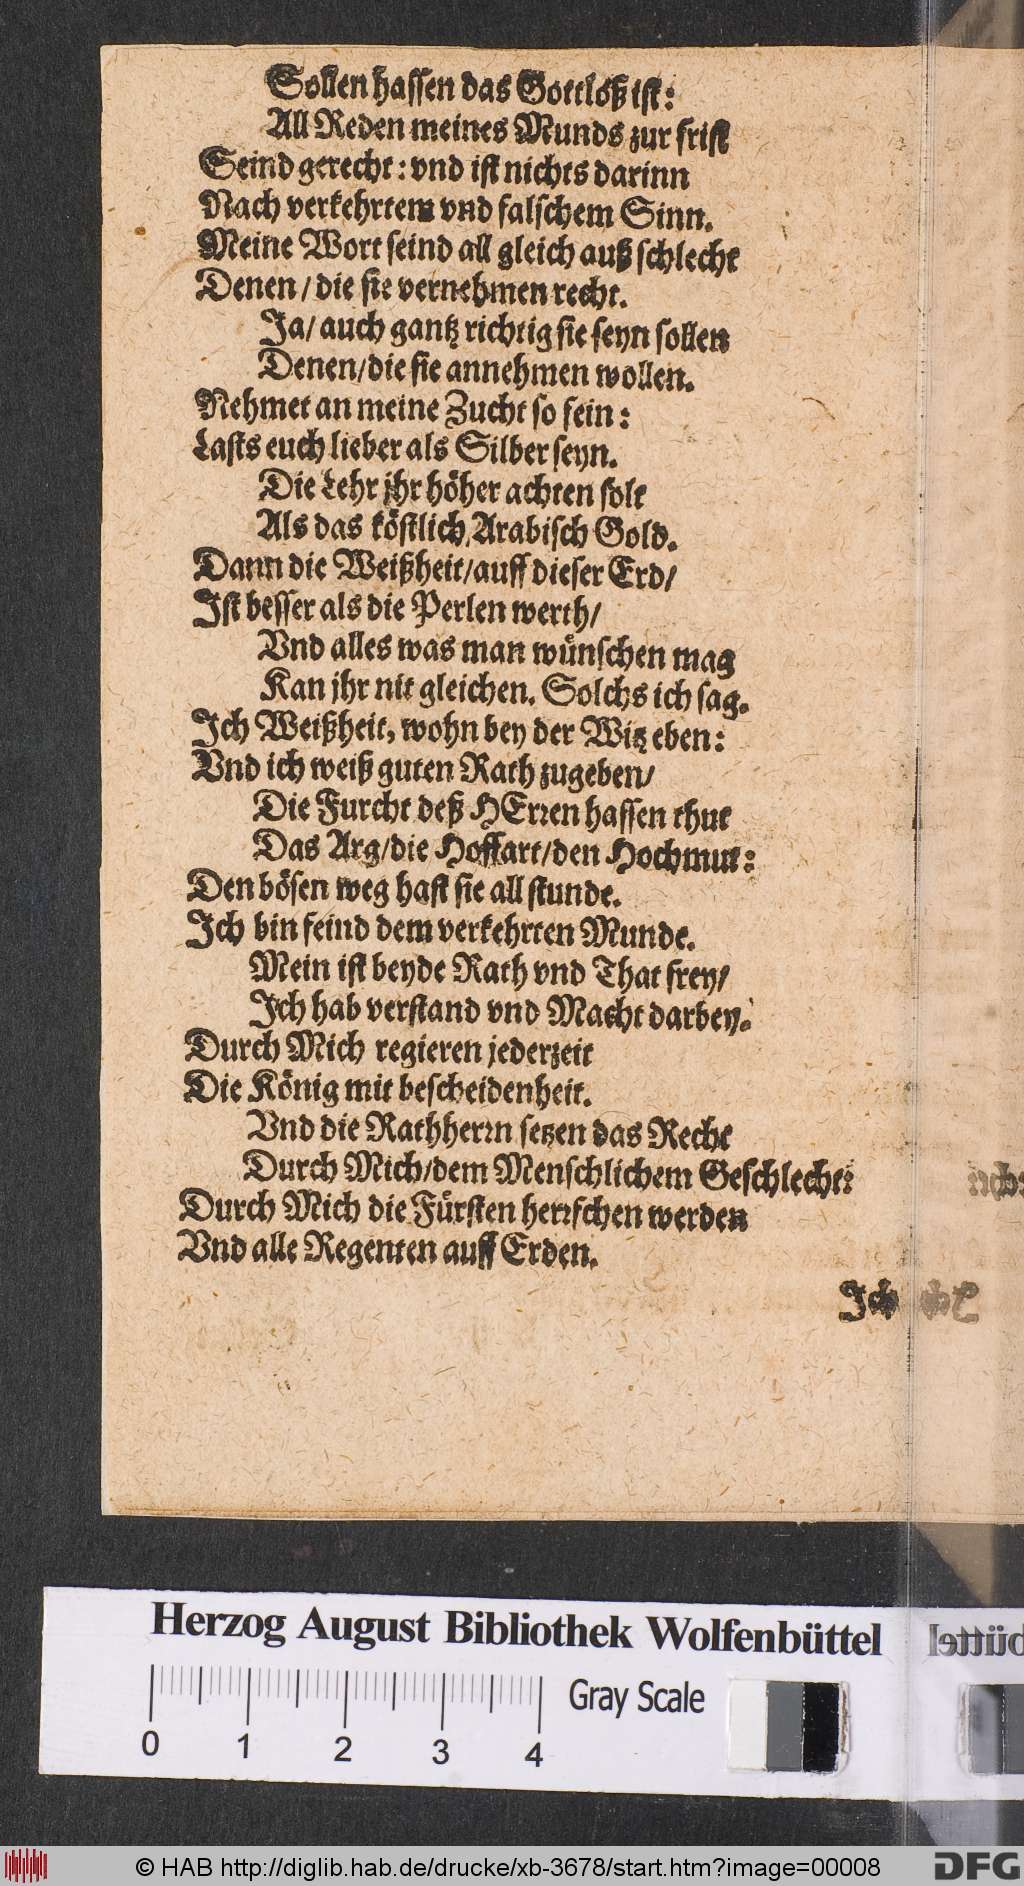 Sollen hassen das Gottloß ist:
All Reden meines Munds zur frist
Seind gerecht: vnd ist nichts darinn
Nach verkehrtem vnd falschem Sinn.
Meine Wort seind all gleich auß schlecht
Denen / die sie vernehmen recht.
Ja/ auch gantz richtig sie seyn sollen
Denen/die sie annehmen wollen.
Nehmet an meine Zucht so fein:
Lasts euch lieber als Silber seyn.
Die Lehr jhr höher achten solt
Als das köstlich Arabisch Gold.
Dann die Weißheit/auff dieser Erd/
Ist besser als die Perlen werth/
Vnd alles was man wünschen mag
Kan jhr nit gleichen. Solchs ich sag.
Ich Weißheit, wohn bey der Witz eben:
Vnd ich weiß guten Rath zugeben/
Die Furcht deß HErren hassen thut
Das Arg/die Hoffart/den Hochmut:
Den bösen weg hast sie all stunde.
Ich bin feind dem verkehrten Munde.
Mein ist beyde Rath vnd That frey/
Ich hab verstand vnd Macht darbey.
Durch Mich regieren jederzeit
Die König mit bescheidenheit.
Vnd die Rathherrn setzen das Recht
Durch Mich/dem Menschlichem Geschlecht:
Durch Mich die Fürsten herrschen werden
Vnd alle Regenten auff Erden.
Ich
Herzog August Bibliothek Wolfenbüttel
Gray Scale
0 1 2 3 4
© HAB http://diglib.hab.de/drucke/xb-3678/start.htm?image=00008
DFG